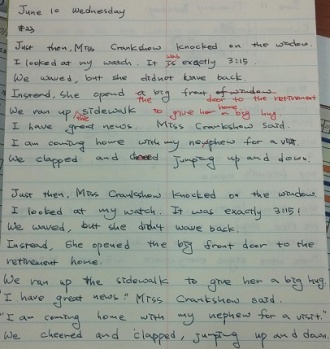 June 10 Wednesday
#23
Just then, Miss Crankshow knocked on the window.
was
I looked at my watch. It is exactly 3:15.
We waved, but she didnot have back.
Instead, she opend a big front of window.
the door to the retirement home.
We ran up sidewalk to give her a big hug.
the
I have great news. Miss Crankshow said.
I am coming home with my nephew for a visit.
We clapped and cheered jumping up and down.
Just then, Miss Crankshow knocked on the window.
I looked at my watch. It was exactly 3:15!
We waved, but she didn't wave back.
Instead, She opened the big front door to the
retirement home.
We ran up the sidewalk to give her a big hug.
"I have great news." Miss Crankshow said.
"I am coming home with my nephew for a visit."
We cheered and clapped, jumping up and down